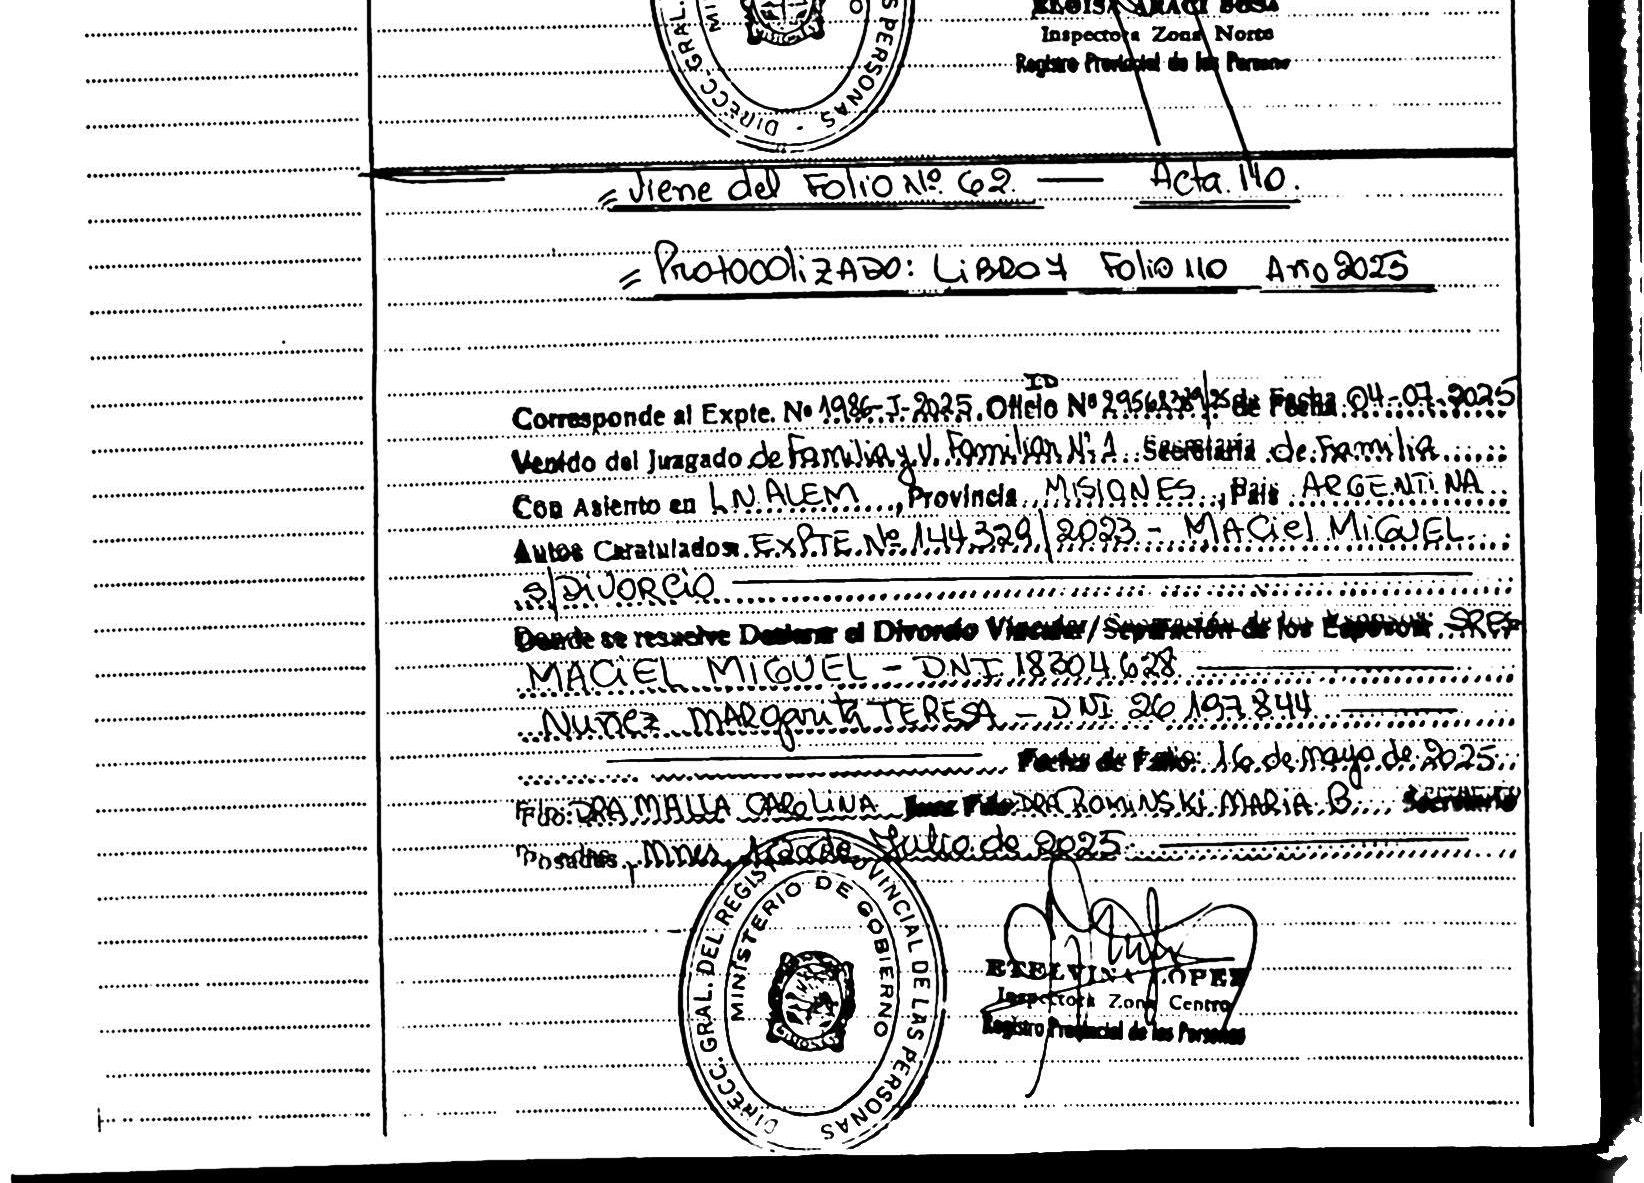 ELOISA ARACI SOSA
Inspectora Zona Norte
Registro Provincial de las Persona
DIRECC. GRAL. PERSONAS
Viene del Folio Nº 62. — Acta. 110.
Protocolizado: Libro 7 Folio 110 Año 2025
ID
Corresponde al Expte. Nº 1986-J-2025. Oficio Nº /25 de Fecha 04-07-2025
Venido del Juzgado de Familia y V. Familiar Nº 1 Secretaria de Familia
Con Asiento en L N ALEM, Provincia MISIONES, Pais ARGENTINA
Autos Caratulados: EXPTE Nº 144.329/2023 - MACIEL MIGUEL
S/DIVORCIO
Donde se resuelve Declarar el Divorcio Vincular/Separación de los Esposos: SRES
MACIEL MIGUEL - DNI 18304.628
NUÑEZ MARGARITA TERESA - DNI 26 197 844
Fecha de Fallo: 16 de mayo de 2025
Fdo: DRA MALLA CAROLINA Juez Fdo DRA ROMINSKI MARIA B. Secretario
Posadas, Mnes, de Julio de 2025
DIRECC. GRAL. DEL REGISTRO PROVINCIAL DE LAS PERSONAS
MINISTERIO DE GOBIERNO
ETELVINA LOPEZ
Inspectora Zona Centro
Registro Provincial de las Personas